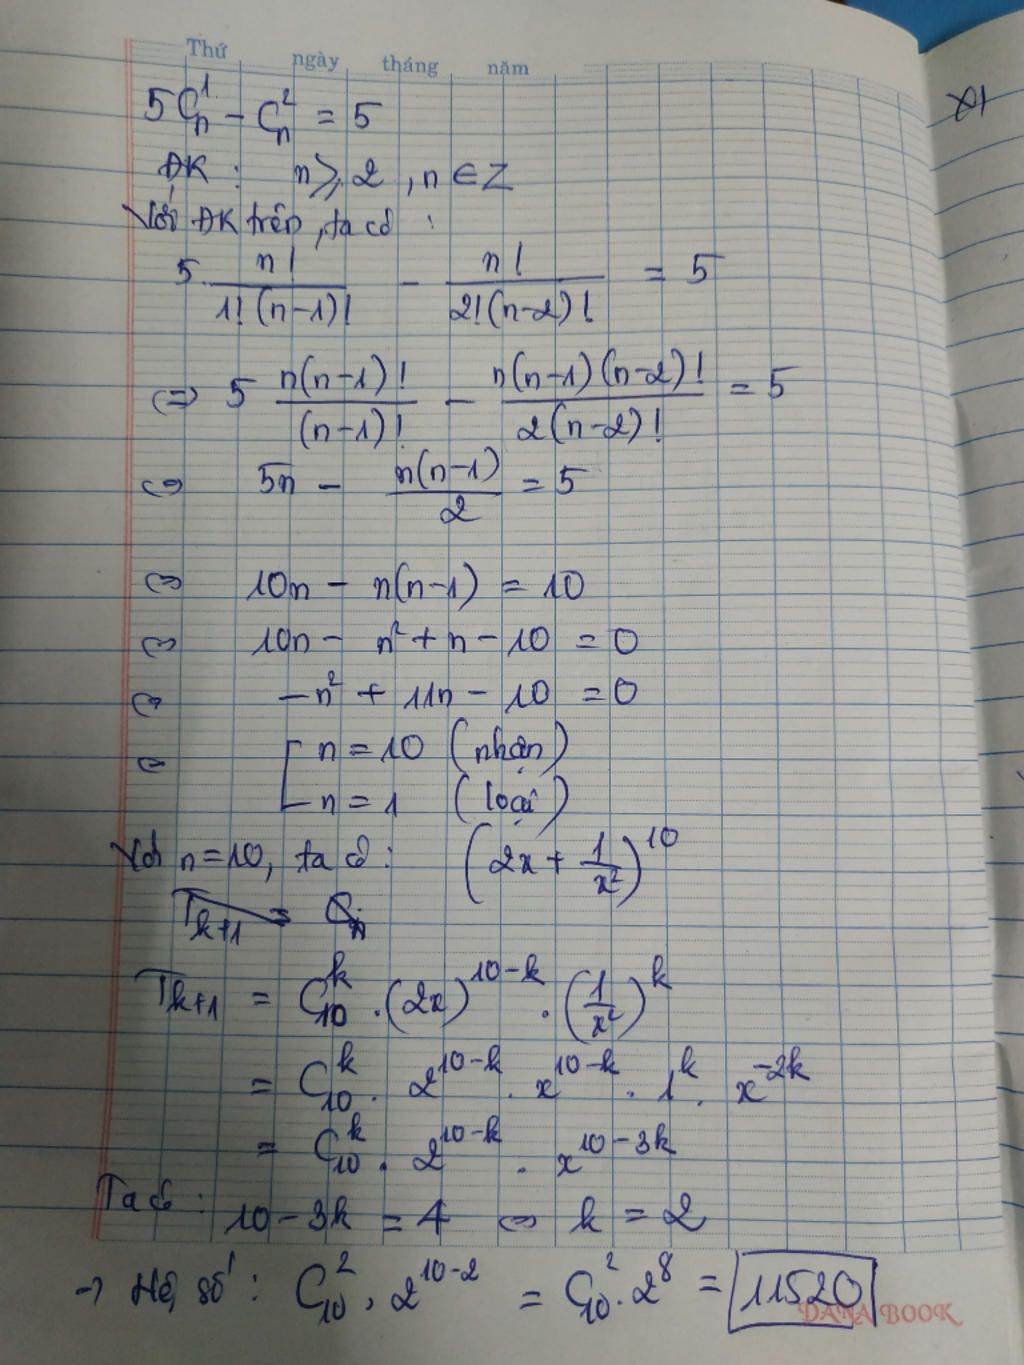 Thứ ngày tháng năm
5C¹ₙ - C²ₙ = 5
ĐK : n ⩾ 2 , n ∈ Z
Với ĐK trên, ta có :
5. n!/(1!(n-1)!) - n!/(2!(n-2)!) = 5
⇔ 5 n(n-1)!/(n-1)! - n(n-1)(n-2)!/(2(n-2)!) = 5
⇔ 5n - n(n-1)/2 = 5
⇔ 10n - n(n-1) = 10
⇔ 10n - n² + n - 10 = 0
⇔ -n² + 11n - 10 = 0
⇔ [ n = 10 (nhận)
n = 1 (loại)
Với n = 10, ta có : (2x + 1/x²)¹⁰
Tₖ₊₁ = Cₙ
Tₖ₊₁ = C₁₀ᵏ . (2x)¹⁰⁻ᵏ . (1/x²)ᵏ
= C₁₀ᵏ . 2¹⁰⁻ᵏ . x¹⁰⁻ᵏ . 1ᵏ . x⁻²ᵏ
= C₁₀ᵏ . 2¹⁰⁻ᵏ . x¹⁰⁻³ᵏ
Ta có : 10 - 3k = 4 ⇔ k = 2
→ Hệ số : C₁₀² . 2¹⁰⁻² = C₁₀² . 2⁸ = 11520
DANA BOOK